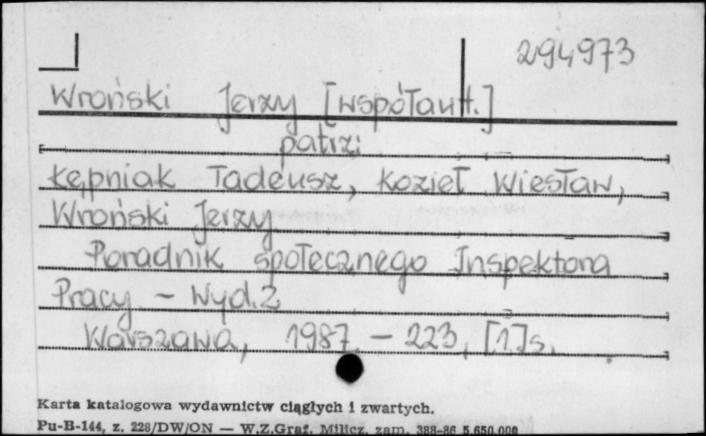 294973
Wroński Jerzy [współaut.]
patrz:
Łępniak Tadeusz, Kozieł Wiesław,
Wroński Jerzy
Poradnik społecznego Inspektora
Pracy – Wyd. 2
Warszawa, 1987 – 223, [1] s.
Karta katalogowa wydawnictw ciągłych i zwartych.
Pu-B-144, z. 228/DW/ON — W.Z.Graf. Milicz, zam. 388-86 5.650.000